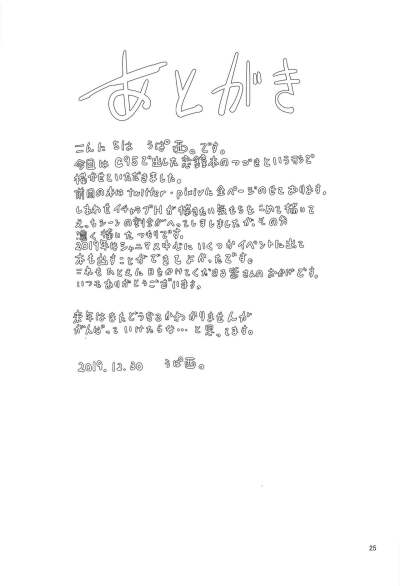 あとがき
こんにちは うぱ西。です。
今回は C95で出した 本のつづきという形で
描かせていただきました。
前回の本は twitter・pixivに全ページのせてあります。
イチャラブHが描きたい気持ちをこめて描いて
えっちシーンの割合がへってしまいましたが、その分
濃く描いたつもりです。
2019年はシャニマス中心にいくつかイベントに出て
本も出すことができてよかったです。
これもひとえに目をかけてくださる皆さんのおかげです。
いつもありがとうございます。
来年はまたどうなるかわかりませんが
がんばっていけたらな…と思ってます。
2019.12.30 うぱ西。
25